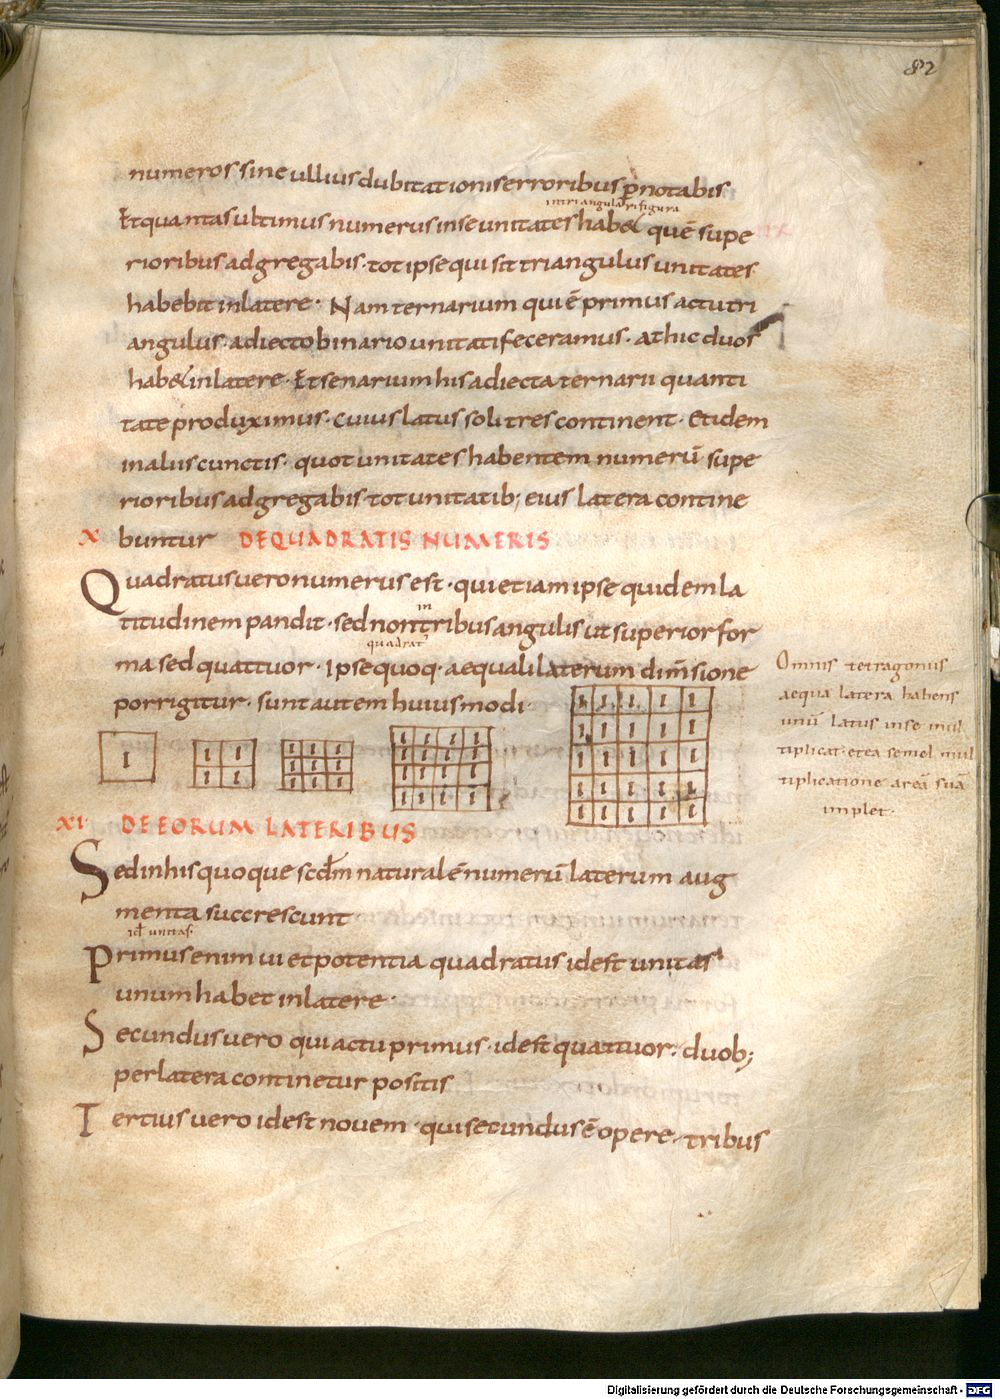 82
numeros sine ullius dubitationis erroribus p̄notabis
in triangulari figura
Et quantas ultimus numerus in se unitates habet quē supe
rioribus adgregabis · tot ipse qui sit triangulus unitates
habebit in latere · Nam ternarium qui ē primus actu tri
angulus · adiecto binario unitati feceramus · at hic duos
habet in latere · Et senarium his adiecta ternarii quanti
tate produximus · cuius latus soli tres continent · Et idem
in aliis cunctis · quot unitates habentem numerū supe
rioribus adgregabis tot unitatib; eius latera contine
buntur
X DE QUADRATIS NUMERIS
Quadratus vero numerus est · qui etiam ipse quidem la
titudinem pandit · sed non tribus angulis ut superior for
in
quadrat
ma sed quattuor · ipse quoq· aequali laterum dim̄sione
porrigitur · sunt autem huiusmodi ·
Omnis tetragonus
aequa latera habens
unū latus in se mul
tiplicat · et ea semel mul
tiplicatione areā suā
implet ·
1
1 1
1 1
1 1 1
1 1 1
1 1 1
1 1 1 1
1 1 1 1
1 1 1 1
1 1 1 1
1 1 1 1 1
1 1 1 1 1
1 1 1 1 1
1 1 1 1 1
1 1 1 1 1
XI· DE EORUM LATERIBUS
Sed in his quoque scd̄m naturalē numerū laterum aug
menta succrescunt
id unitas·
Primus enim vi et potentia quadratus id est unitas
unum habet in latere ·
Secundus vero qui actu primus · id est quattuor · duob;
per latera continetur positis
Tertius vero id est novem · qui secundus ē opere · tribus
Digitalisierung gefördert durch die Deutsche Forschungsgemeinschaft - DFG